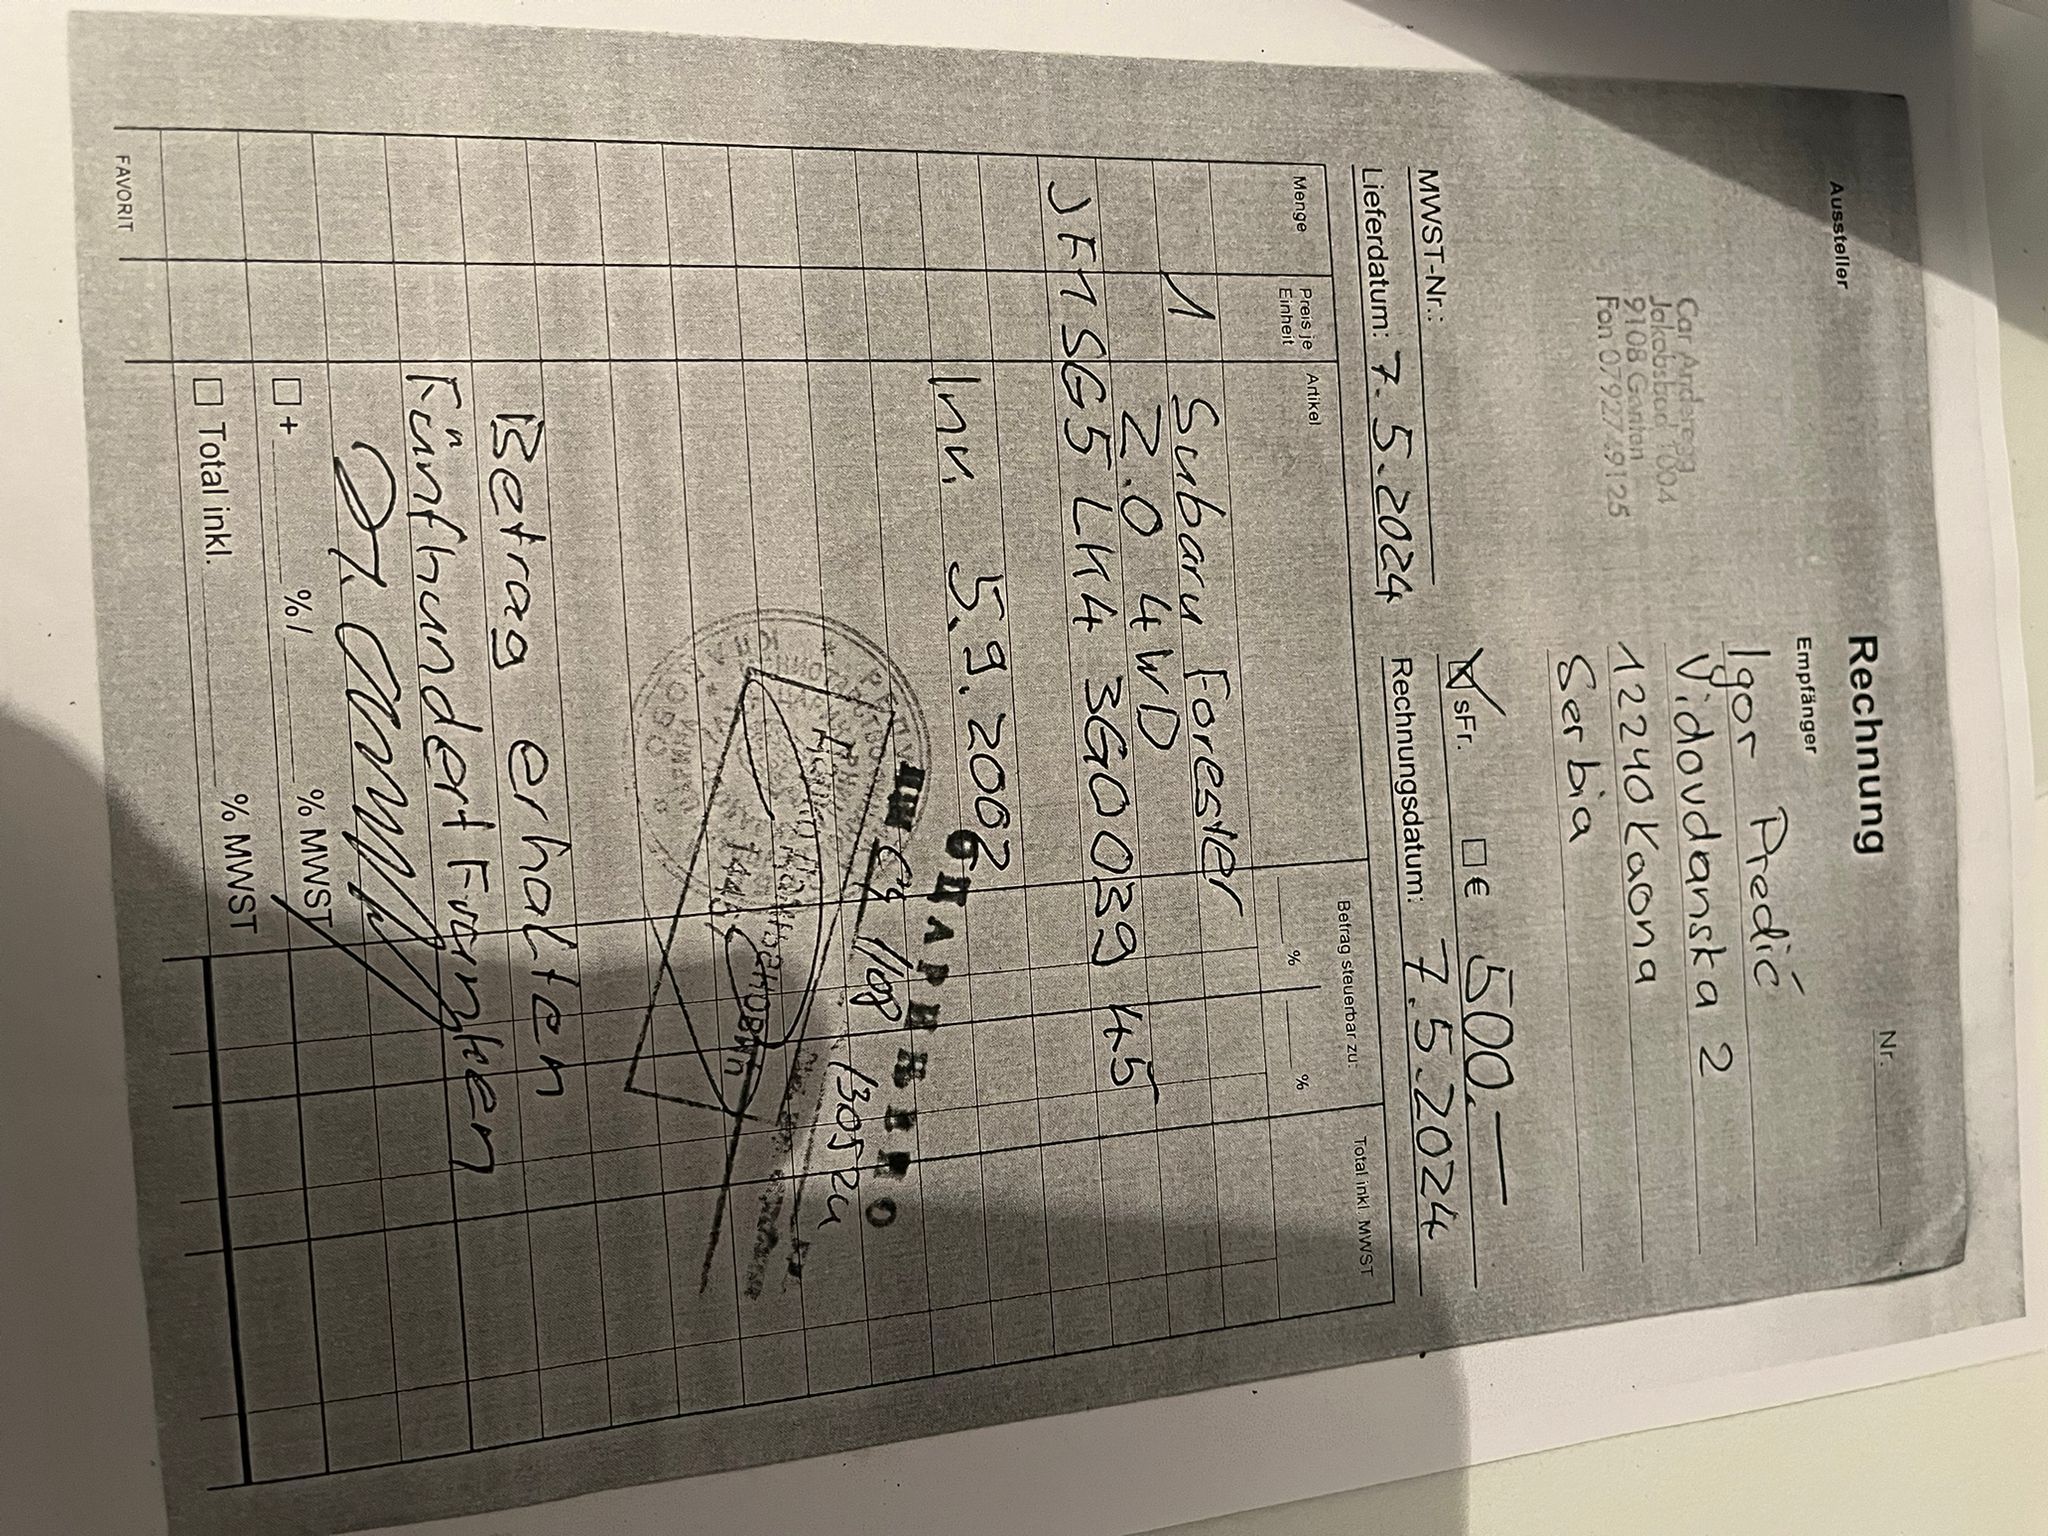 Rechnung
Nr.
Aussteller
Empfänger
Car Anderegg
Jakobsbad 1004
9108 Gonten
Fon 079 277 91 25
Igor Predić
Vidovdanska 2
12240 Kaona
Serbia
MWST-Nr.:
sFr. € 500.—
Lieferdatum: 7.5.2024
Rechnungsdatum: 7.5.2024
Menge
Preis je Einheit
Artikel
Betrag steuerbar zu:
% %
Total inkl. MWST
1 Subaru Forester
2.0 4WD
JF1SG5LH43G003945
Inv. 5.9.2002
ЦАРИНЕЊЕНО
Betrag erhalten
Fünfhundert Franken
+ % / % MWST
Total inkl. % MWST
FAVORIT